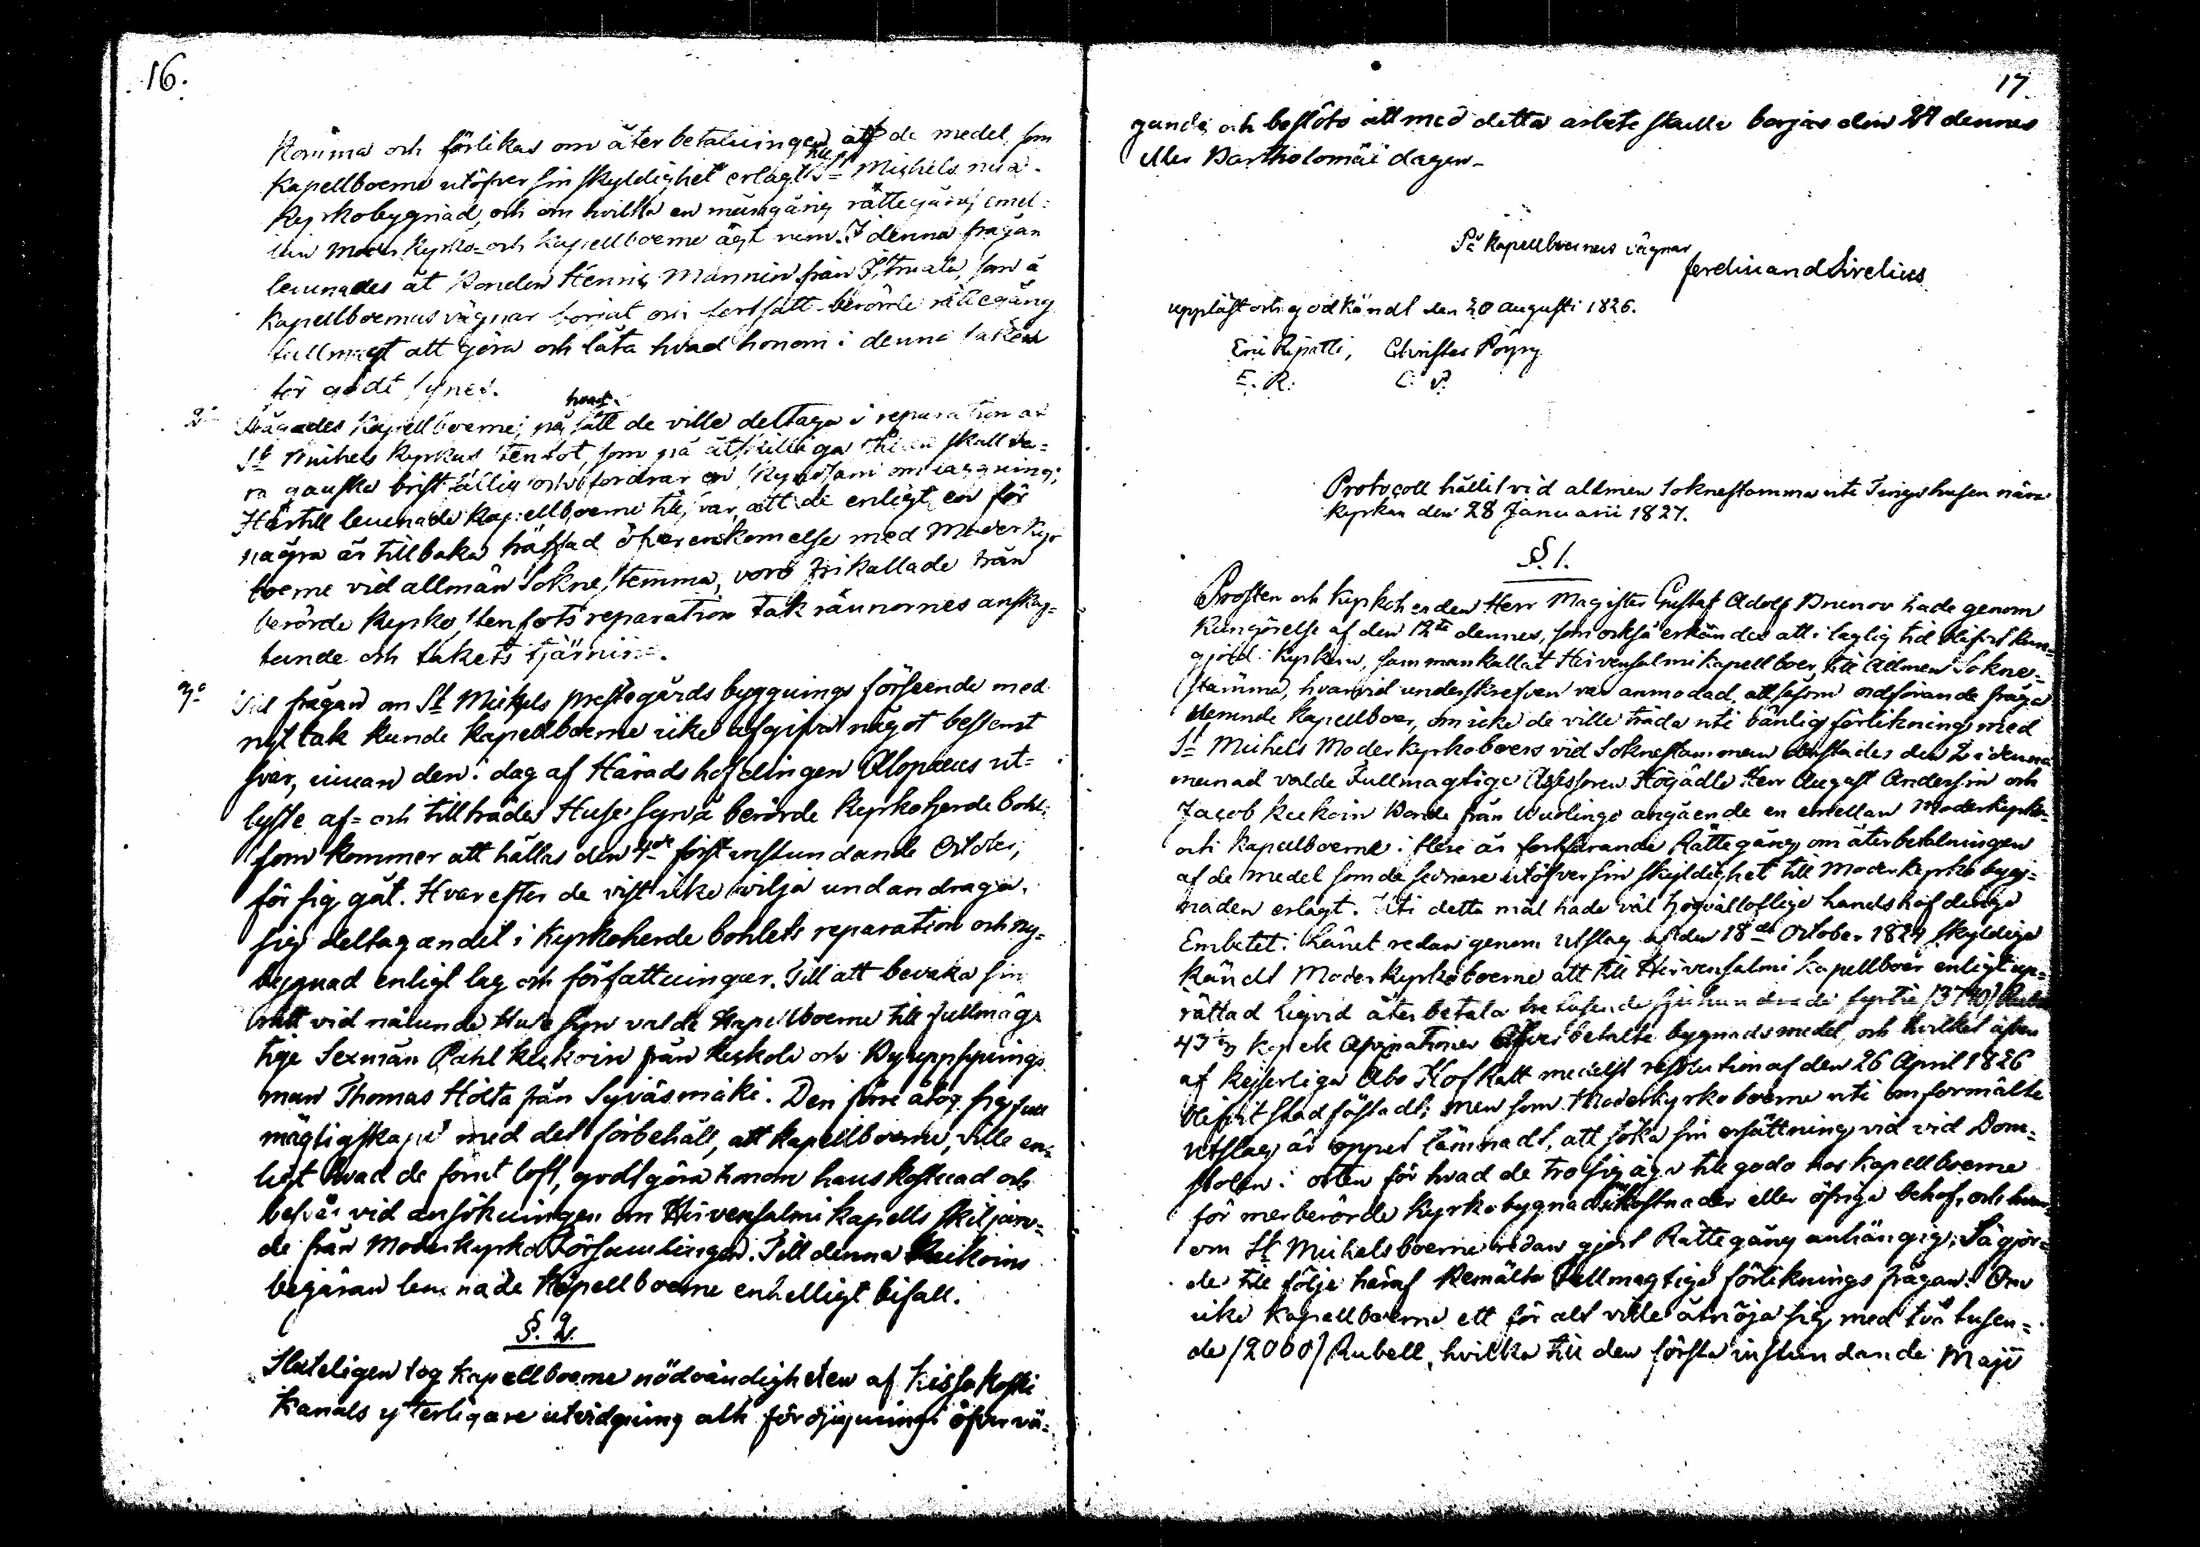 16.
komma och förlikas om återbetalningen af de medel som
Kapellboerne utöfver sin skyldighet erlagt till St Michels nua
Kyrkobygnad, och om hvilka en mångårig rättegång emel-
lan Moderkyrko- och Kapellboerne ägt rum. I denna frågan
lemnades åt Bonden Hennric Manninen från, som å
Kapellboernas vägnar börjat och fortsatt berörde rättegång
fullmagt att göra och låta hvad honom i denne saken
för godt synes.
2o Frågades Kapellboerne; på hvad sätt de ville deltaga i reparation av
St Michels Kyrkas stenfot, som på åtskilliga ställen skall va-
ra ganska bristfällig och fordrar en omläggning;
Härtill lemnade Kapellboerne till svar, att de enligt en för
några år tillbaka träffad öfverenskomelse med Moderkyr
boerne vid allmän Sokne stemma, voro frikallade från
berörde Kyrko stenfots reparation takrännornes anskaf-
fande och takets tjärning.
3o Till frågan om St Michels prestegårds byggnings förseende med
nytt tak kunde Kapellboerne icke afgifva något bestemt
svar, innan den i dag af Häradshöfdingen Alopæus ut-
lyste af- och tillträdes Huse syn å berörde Kyrkoherde bohl,
som kommer att hållas den 4de först instundande October,
för sig gåt. Hvarefter de visst icke vilja undandraga
sig deltagandet i Kyrkoherde bohlets reparation och ny-
byggnad enligt lag och författningar. Till att bevaka sin
rätt vid nämnde Huse syn valde Kapellboerne till fullmäg-
tige Sexmän Pahl Keikoin från Keskola och Byuppsynings
man Thomas Hölta från Syväsmäki. Den förre åtog sig full
mägtigskapet med det förbehåll, att kapellboerne, ville en-
ligt hvad de forut loft, godtgöra honom hans kostnad och
besvär vid ansökningen om Hirvensalmi kapells skiljan-
de från Moderkyrko Församlingen. Till denna Keikoins
begäran lemnade Kapellboerne enhelligt bifall.
§. 2.
Sluteligen tog Kapellboerne nödvändigheten af Kissakoski
Kanals ytterligare utvidgning och fördjupning i öfvervä-
17
gande och beslöts att med detta arbete skulle börjas den 24 dennes
eller Bartholomäi dagen.
På Kapellboernes vägnar
Ferdinand Sirelius
uppläst och godkändt den 20 augusti 1826.
Eric Ripatti, Christer Pöyry
E. R. C. P.
Protocoll hållit vid allmen Soknestamma uti Tingshusen nära
kyrkan den 28 Januarii 1827.
§. 1.
Prosten och Kyrkoherden Herr Magister Gustaf Adolf Brunou hade genom
Kungörelse af den 12te dennes, som också erkändes att i laglig tid blifvit kun-
gjord i Kyrkan, sammankallat Hirvensalmi kapellboer till Allmen Sokne-
stamma, hvarvid underskrefven var anmodad, att såsom ordförande fråga
bemelde Kapellboer, om icke de ville träda uti vänlig förlikning med
St Michels Moderkyrkoboers vid Soknestamman derstädes den 2 i denna
månad valde Fullmagtige Assessoren Högädle Herr August Andersin och
Jacob Keikoin Bonde från angående en emellan Moderkyrko-
och Kapellboerne i flere år fortfarande Rättegång om återbetalningen
af de medel som de sednare utöfver sin skyldighet till Moderkyrko bygg-
naden erlagt. Uti detta mål hade väl högvälloflige Landshöfdinge
Embetet i Länet redan genom Utslag af den 18de October 1824 skyldige
kändt Moderkyrkoboerne att till Hirvensalmi kapellboer enligt up-
rättad Liqvid återbetala tre tusende sjuhundrade fyrtio (3740) Rubel
43 kopek Assignationer öfver betalte bygnadsmedel, och hvilket äfven
af Kejserliga Åbo Hofrätt medelst resolution af den 26 April 1826
blifvit stadfästadt; men som Moderkyrkoboerne uti omformälte
Utslag är öppet lämnadt, att söka sin ersättning vid vid Dom-
stolen i orten för hvad de tro sig äga till godo hos Kapellboerne
för merberörde Kyrkobygnadskostnader eller öfriga behof, och hvar-
om St Michelsboerne redan gjort Rättegång anhängig; Så gjor-
de till följe häraf Bemälte Fullmagtige förliknings frågan: Om
icke Kapellboerne ett för alt ville åtnöja sig med två tusen-
de (2000) Rubell, hvilka till den första instundande Maji